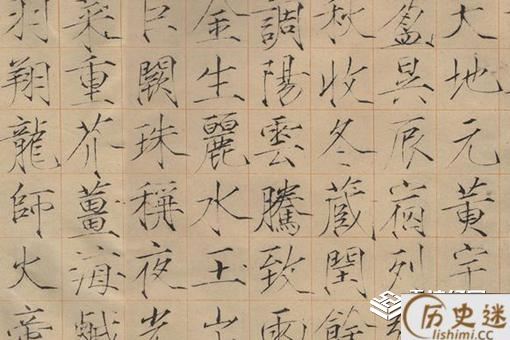 天地元黄宇
盈昃辰宿列
秋收冬藏閏餘
調陽雲騰致雨
金生麗水玉出
巨闕珠稱夜光
菜重芥薑海鹹
羽翔龍師火帝
历史迷
lishimi.cc